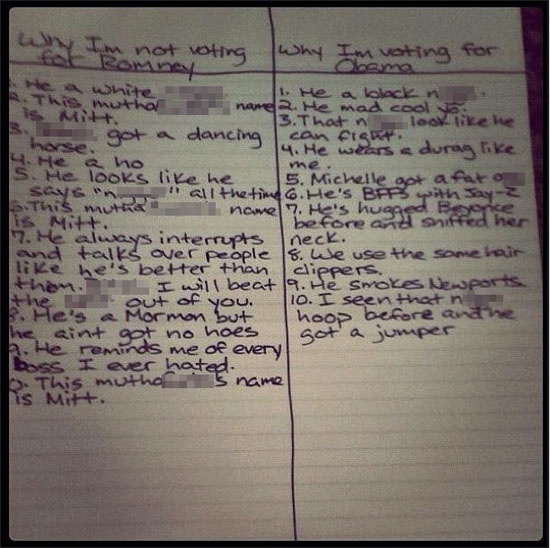 Why I'm not voting
for Romney
1. He a white
2. This mutha name
is Mitt.
3. got a dancing
horse.
4. He a ho
5. He looks like he
says "n " all the time
6. This mutha name
is Mitt.
7. He always interrupts
and talks over people
like he's better than
them. I will beat
the out of you.
8. He's a Mormon but
he aint got no hoes
9. He reminds me of every
boss I ever hated.
0. This mutha s name
is Mitt.
Why I'm voting for
Obama
1. He a black n .
2. He mad cool yo.
3. That n look like he
can fight.
4. He wears a durag like
me.
5. Michelle got a fat a
6. He's BFFS with Jay-Z
7. He's hugged Beyonce
before and sniffed her
neck.
8. We use the same hair
clippers.
9. He smokes Newports.
10. I seen that n
hoop before and he
got a jumper